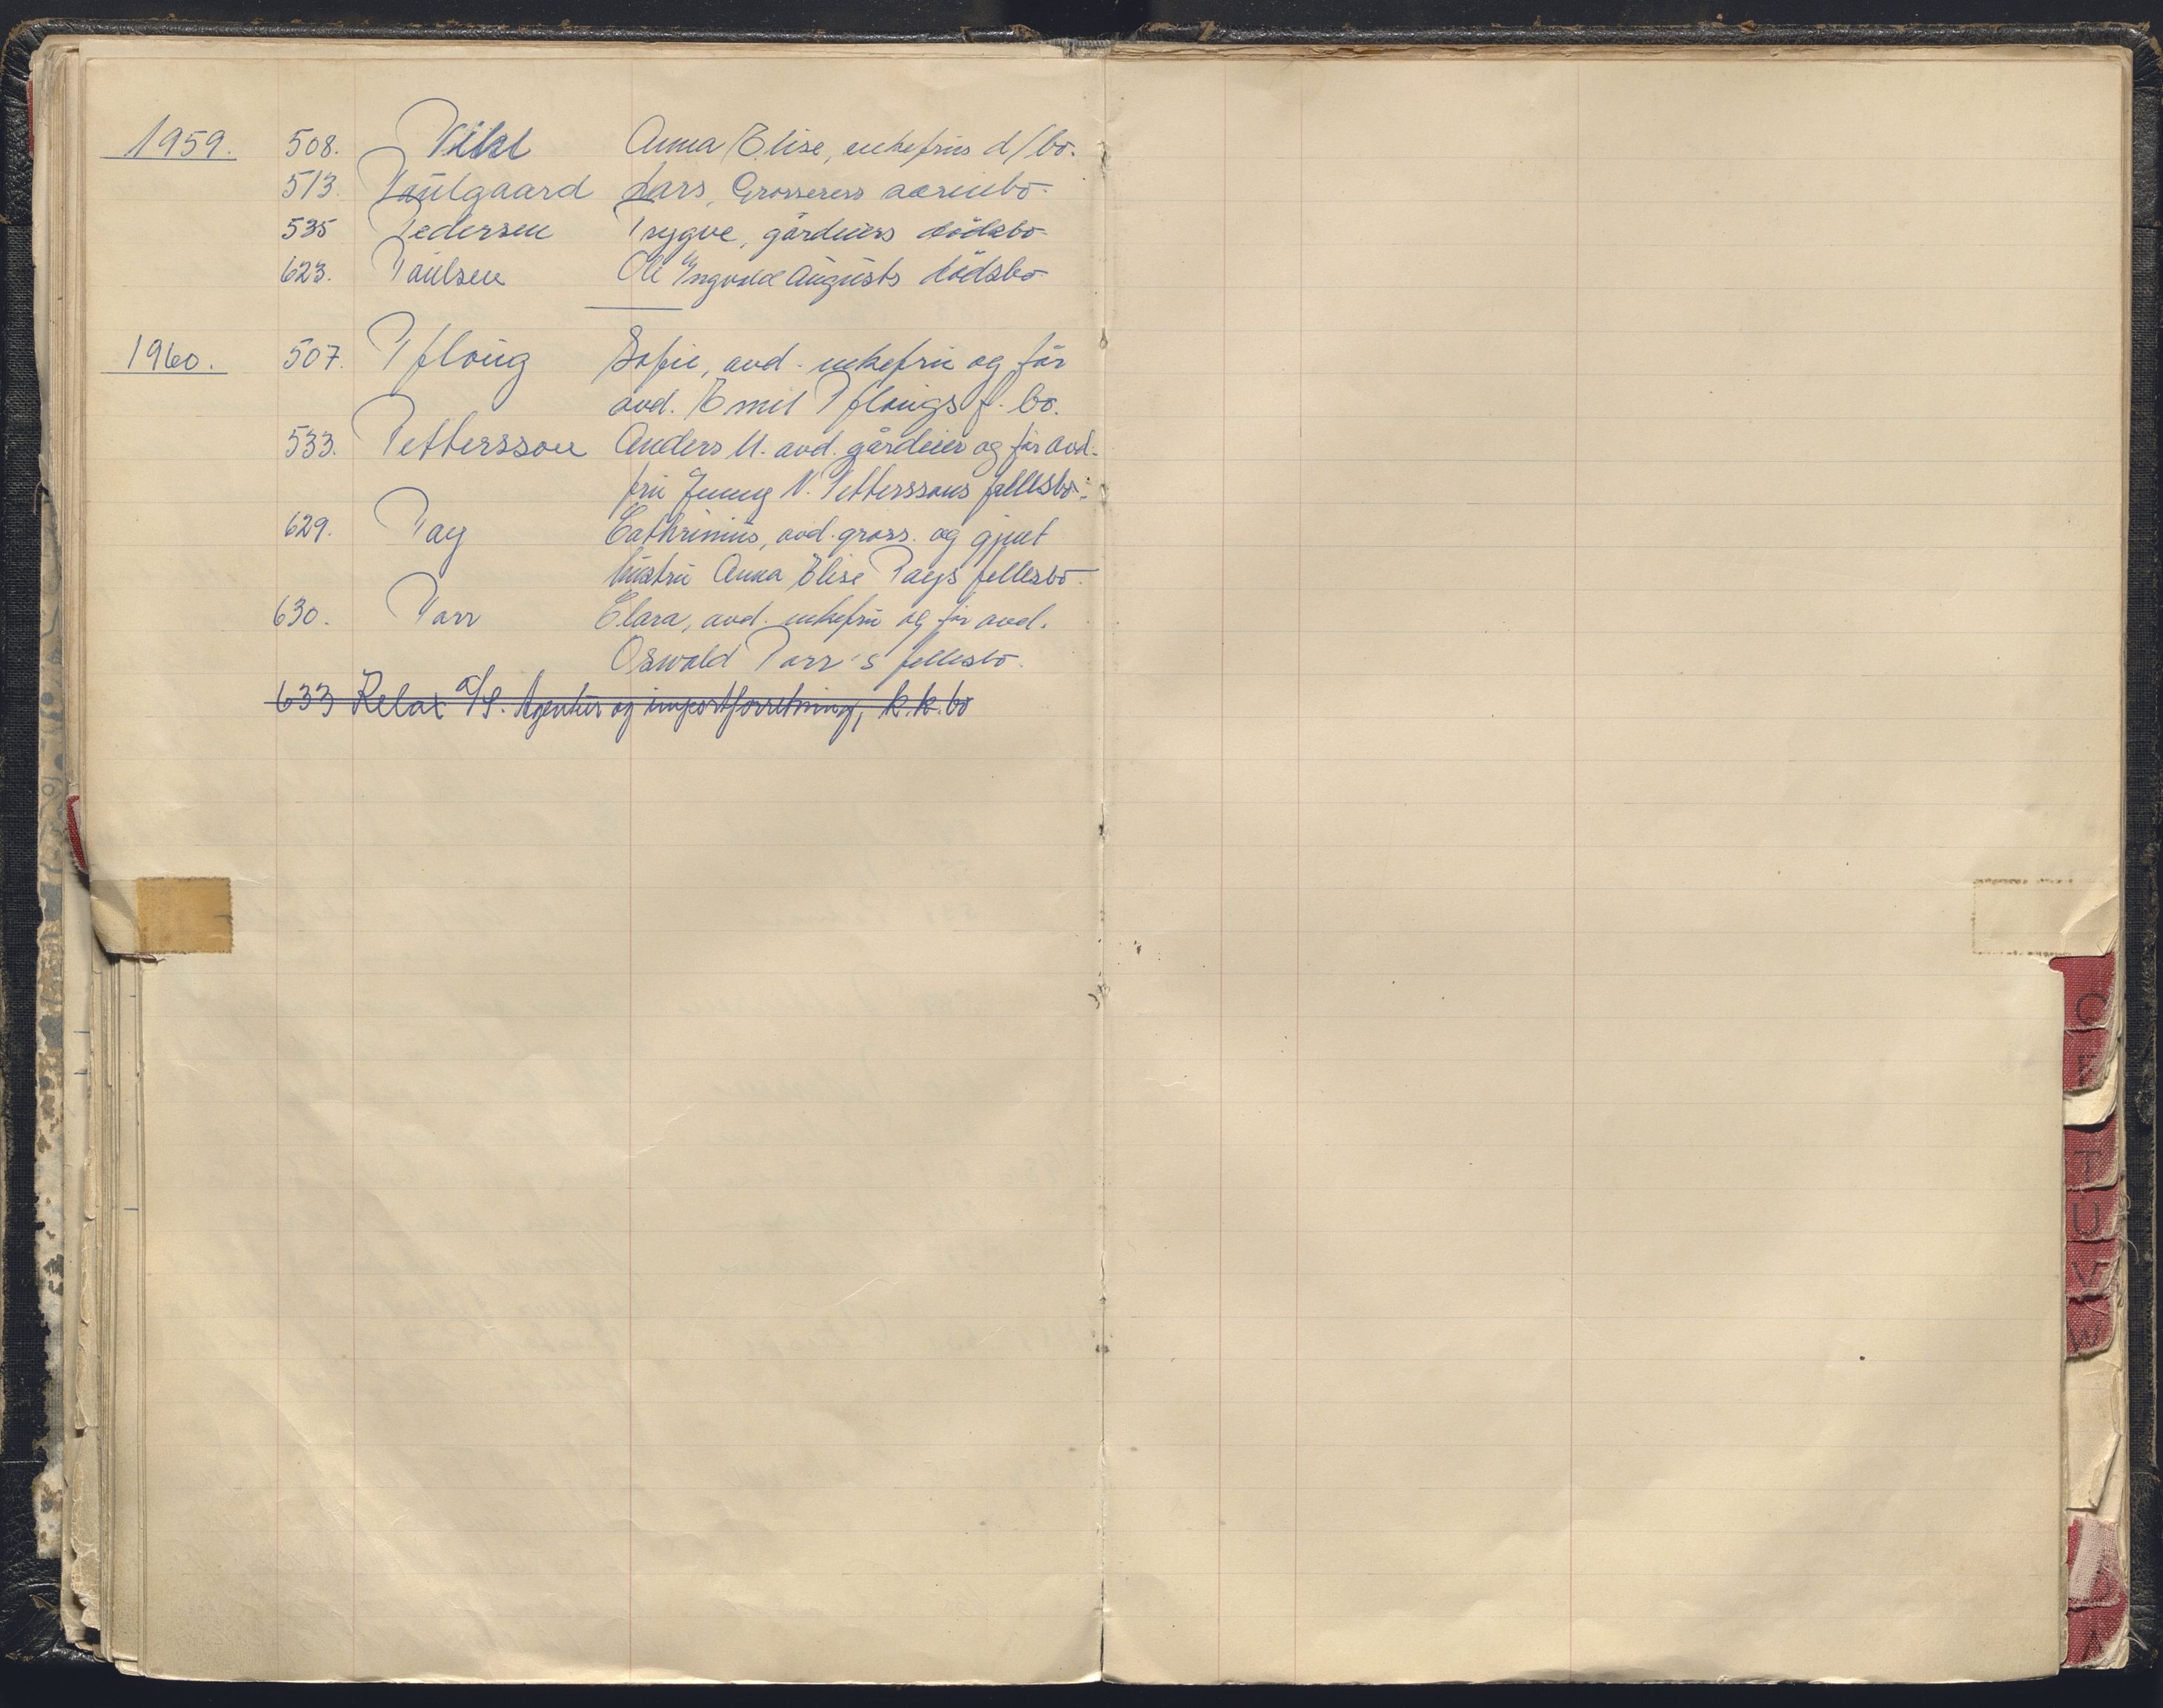 1959. 508. Pihl Anna Elise, enkefrus d/bo.
513. Paulgaard Lars, Grosserers bo
535 Pedersen Trygve, gårdeiers dödsbo
623. Paulsen Ole Ingvald Augusts dödsbo
1960. 507. Pfloug Sofie, avd. enkefru og før
avd. Emil Pflougs f. bo.
533. Pettersson Anders U. avd. gårdeier og før avd.
fru Jenny N. Petterssons fellesbo.
629. Pay Cathrinius, avd. gross. og gjenl
hustru Anna Elise Pays fellesbo.
630. Parr Clara, avd. enkefru og før avd.
Oswald Parr's fellesbo.
633 Relax A/S. Agentur og importforretning, k.k.bo
Q
T
U
V
W